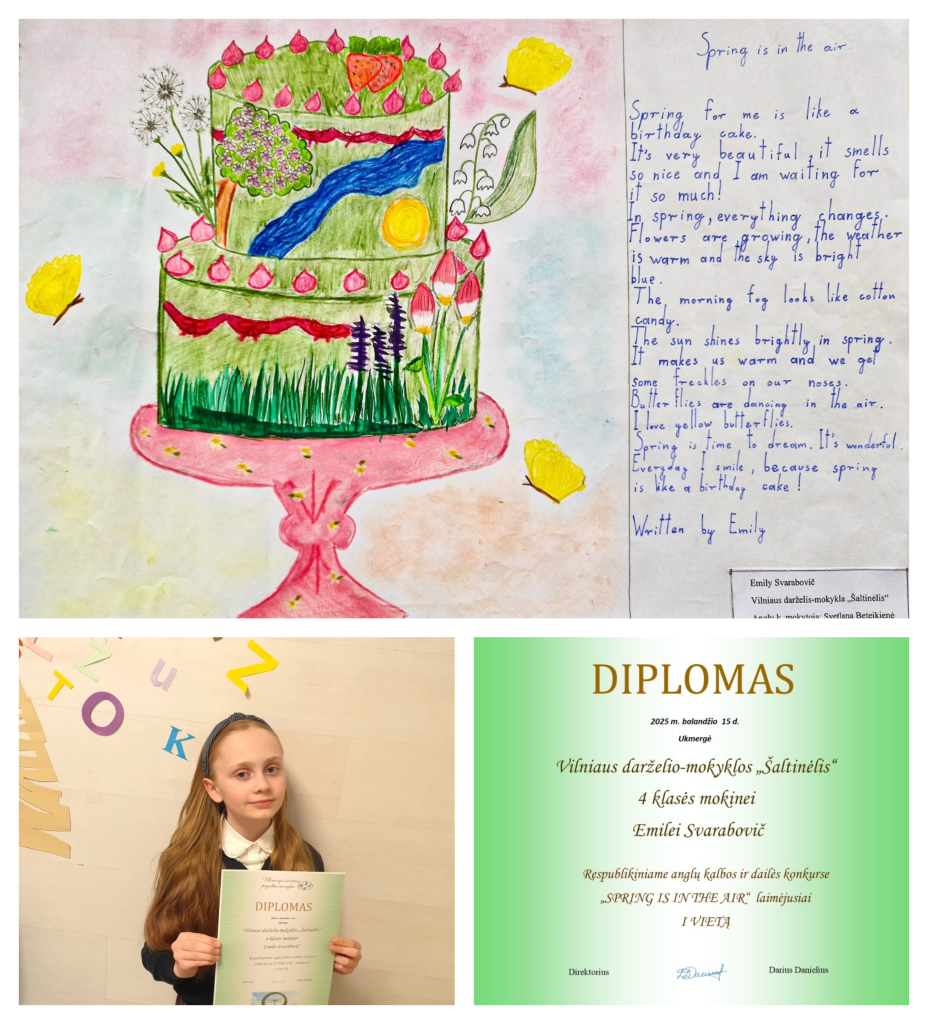 Spring is in the air
Spring for me is like a
birthday cake.
It's very beautiful, it smells
so nice and I am waiting for
it so much!
In spring, everything changes.
Flowers are growing, the weather
is warm and the sky is bright
blue.
The morning fog looks like cotton
candy.
The sun shines brightly in spring.
It makes us warm and we get
some freckles on our noses.
Butterflies are dancing in the air.
I love yellow butterflies.
Spring is time to dream. It's wonderful.
Everyday I smile, because spring
is like a birthday cake!
Written by Emily
Emily Svarabovič
Vilniaus darželis-mokykla „Šaltinėlis“
Anglų k. mokytoja: Svetlana Beteikienė
Z U Z
T O K
DIPLOMAS
Vilniaus darželio-mokyklos „Šaltinėlis“
4 klasės mokinei
Emilei Svarabovič
I VIETĄ
DIPLOMAS
2025 m. balandžio 15 d.
Ukmergė
Vilniaus darželio-mokyklos „Šaltinėlis“
4 klasės mokinei
Emilei Svarabovič
Respublikiniame anglų kalbos ir dailės konkurse
„SPRING IS IN THE AIR“ laimėjusiai
I VIETĄ
Direktorius
Darius Danielius